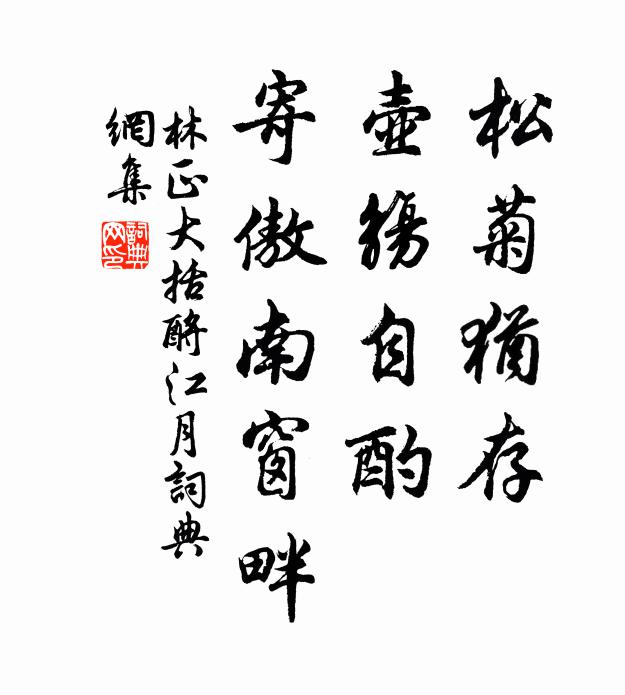 松菊猶存
壺觴自酌
寄傲南窗畔
林正大括酹江月詞典
網集
詞典
网印